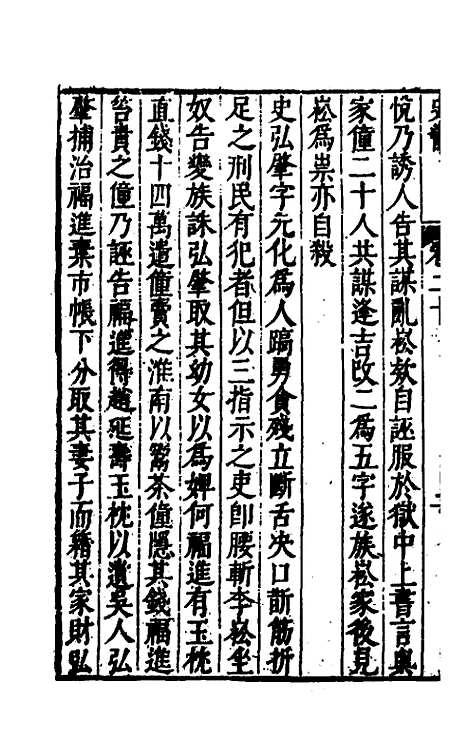 悅乃誘人告其謀亂崧欵自誣服於獄中上書言與
家僮二十人共謀逢吉改二爲五字遂族崧家後見
崧爲祟亦自殺
史弘肇字元化爲人蹻勇貪殘立斷舌决口斮筋折
足之刑民有犯者但以三指示之吏卽腰斬李崧坐
奴告變族誅弘肇取其幼女以爲婢何福進有玉枕
直錢十四萬遣僮賣之淮南以鬻茶僮隱其錢福進
笞責之僮乃誣告福進得趙延壽玉枕以遺吳人弘
肇捕治福進棄市帳下分取其妻子而籍其家財弘